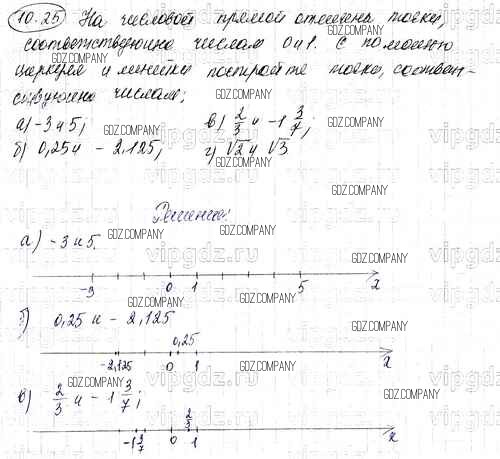 10.25 На числовой прямой отмечены точки,
соответствующие числам 0 и 1. С помощью
циркуля и линейки постройте точки, соответ-
ствующие числам:
а) -3 и 5; в) 2/3 и -1 3/7;
б) 0,25 и -2,125; г) √2 и √3
Решение:
а) -3 и 5.
-3 0 1 5 x
б) 0,25 и -2,125
0,25
-2,125 0 1 x
в) 2/3 и -1 3/7;
2/3
-1 3/7 0 1 x
GDZ.COMPANY
vipgdz.ru